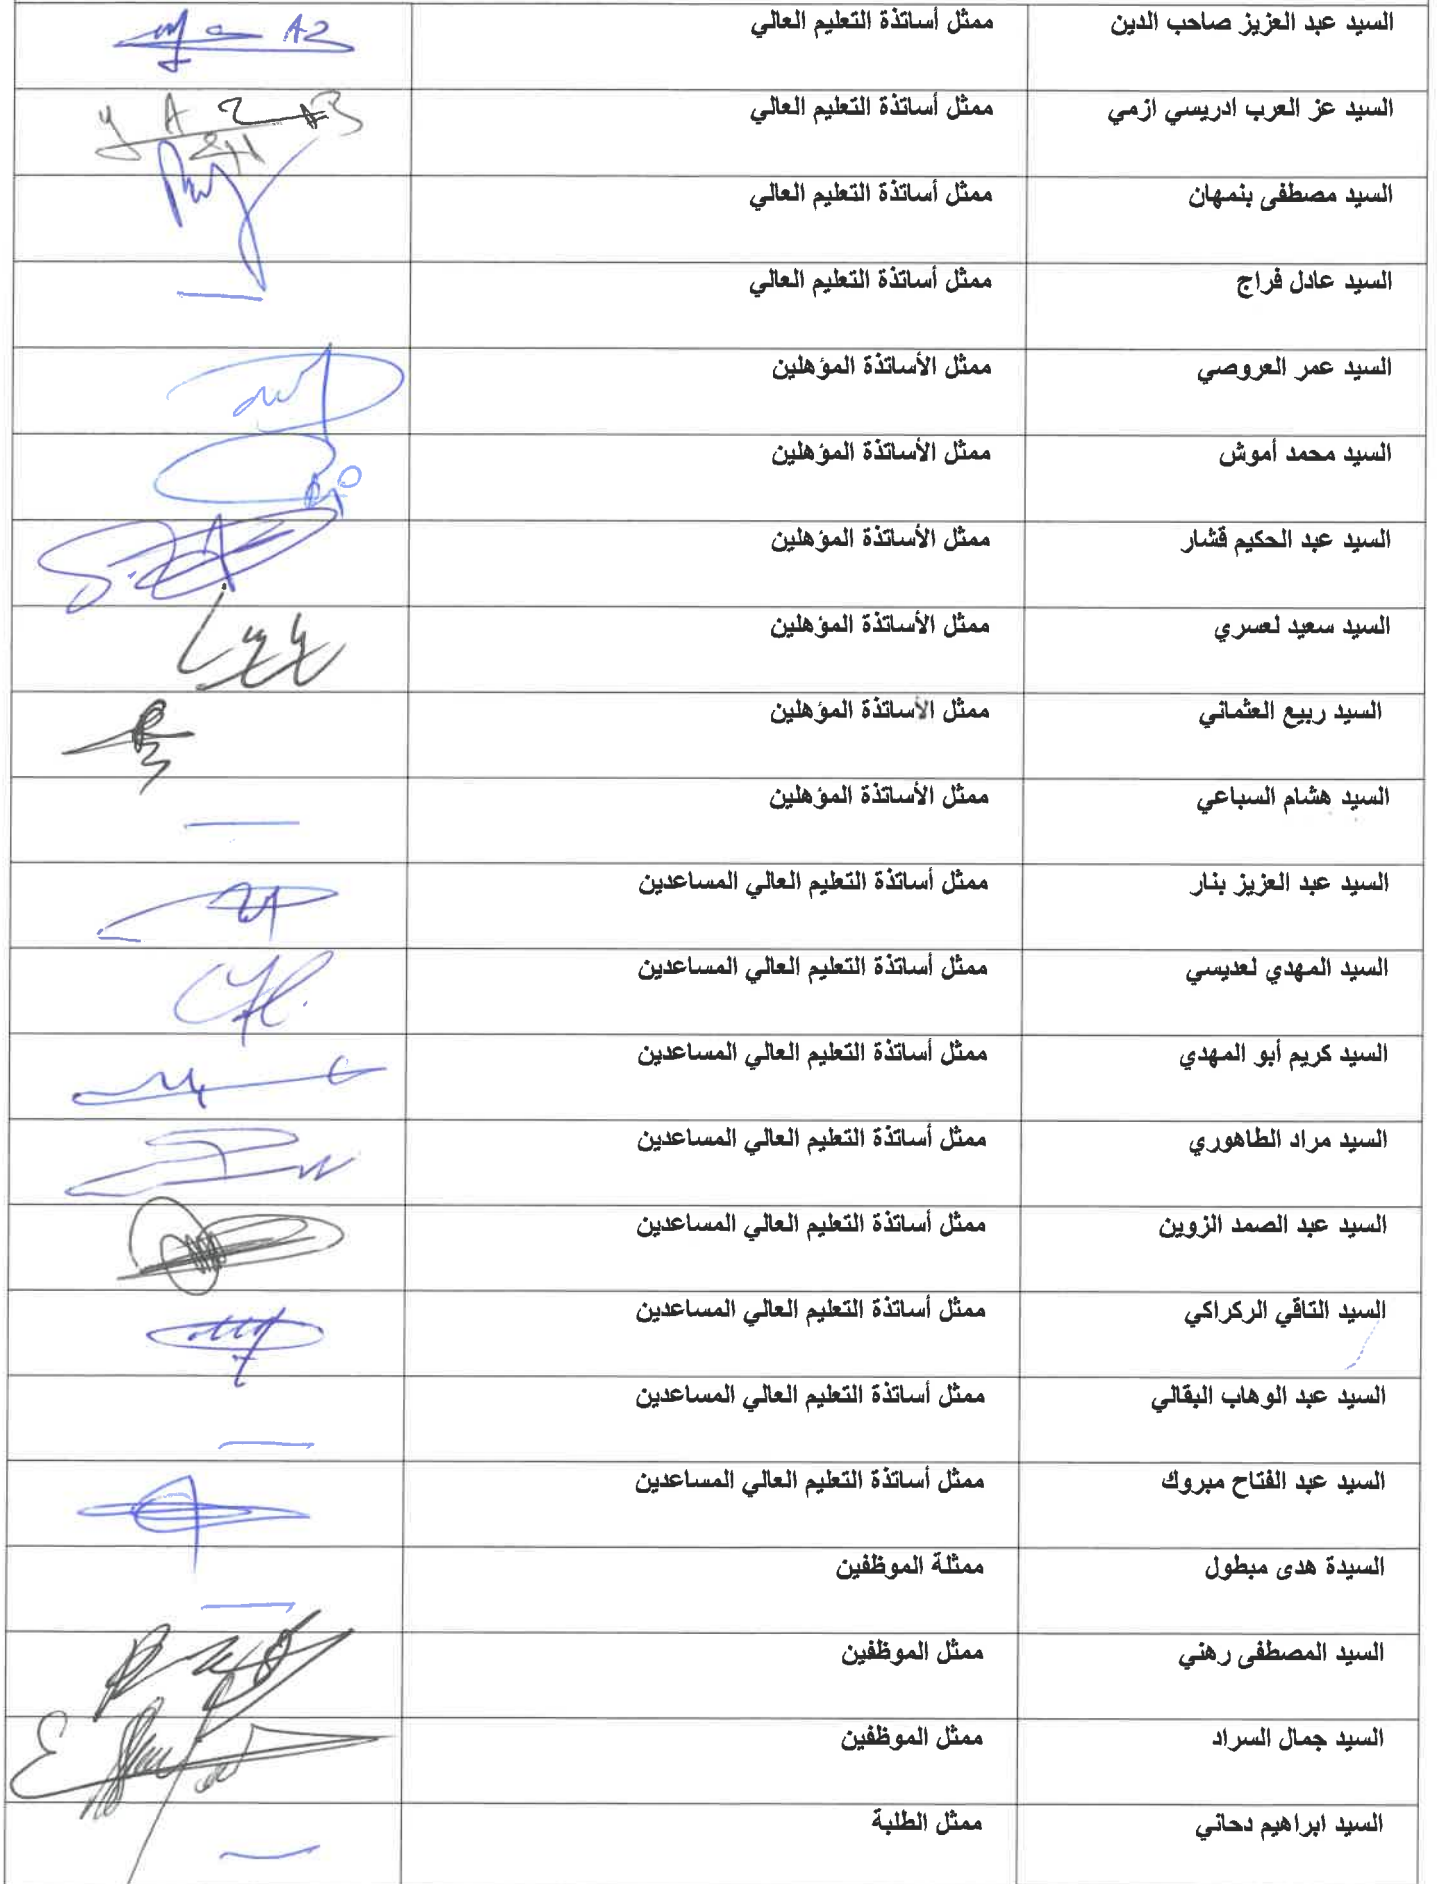 السيد عبد العزيز صاحب الدين ممثل أساتذة التعليم العالي A2
السيد عز العرب ادريسي ازمي ممثل أساتذة التعليم العالي
السيد مصطفى بنمهان ممثل أساتذة التعليم العالي
السيد عادل فراج ممثل أساتذة التعليم العالي
السيد عمر العروصي ممثل الأساتذة المؤهلين
السيد محمد أموش ممثل الأساتذة المؤهلين
السيد عبد الحكيم قشار ممثل الأساتذة المؤهلين
السيد سعيد لعسري ممثل الأساتذة المؤهلين
السيد ربيع العثماني ممثل الأساتذة المؤهلين
السيد هشام السباعي ممثل الأساتذة المؤهلين
السيد عبد العزيز بنار ممثل أساتذة التعليم العالي المساعدين
السيد المهدي لعديسي ممثل أساتذة التعليم العالي المساعدين
السيد كريم أبو المهدي ممثل أساتذة التعليم العالي المساعدين
السيد مراد الطاهوري ممثل أساتذة التعليم العالي المساعدين
السيد عبد الصمد الزوين ممثل أساتذة التعليم العالي المساعدين
السيد التاقي الركراكي ممثل أساتذة التعليم العالي المساعدين
السيد عبد الوهاب البقالي ممثل أساتذة التعليم العالي المساعدين
السيد عبد الفتاح مبروك ممثل أساتذة التعليم العالي المساعدين
السيدة هدى مبطول ممثلة الموظفين
السيد المصطفى رهني ممثل الموظفين
السيد جمال السراد ممثل الموظفين
السيد ابراهيم دحاني ممثل الطلبة